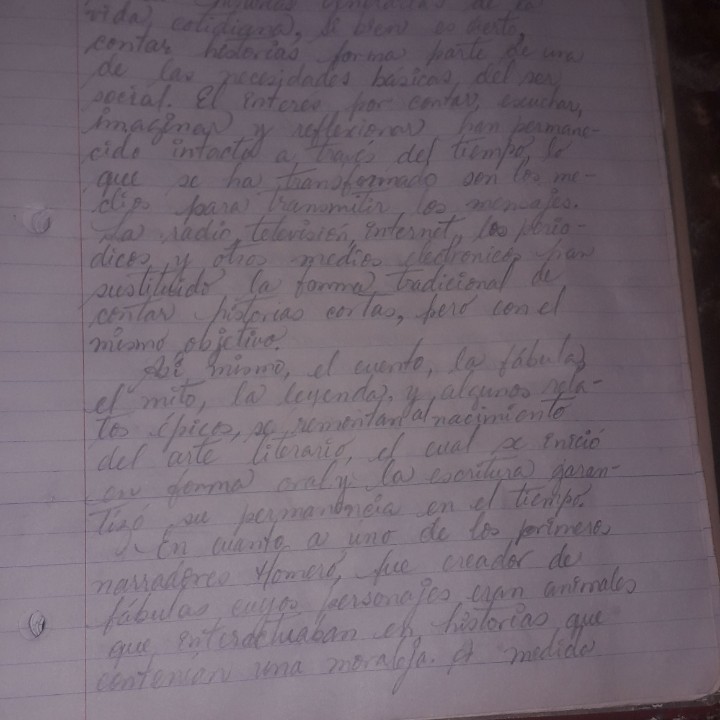 de la
vida cotidiana, si bien es cierto,
contar historias forma parte de una
de las necesidades básicas del ser
social. El interes por contar, escuchar,
imaginar y reflexionar han permane-
cido intacto a través del tiempo, lo
que se ha transformado son los me-
dios para transmitir los mensajes.
La radio, televisión, internet, los perio-
dicos y otros medios electronicos han
sustituido la forma tradicional de
contar historias cortas, pero con el
mismo objetivo.
Así mismo, el cuento, la fábula,
el mito, la leyenda, y algunos rela-
tos épicos, se remontan al nacimiento
del arte literario, el cual se inició
en forma oral y la escritura garan-
tizó su permanencia en el tiempo.
En cuanto a uno de los primeros
narradores Homero, fue creador de
fábulas cuyos personajes eran animales
que interactuaban en historias que
contenían una moraleja. A medida